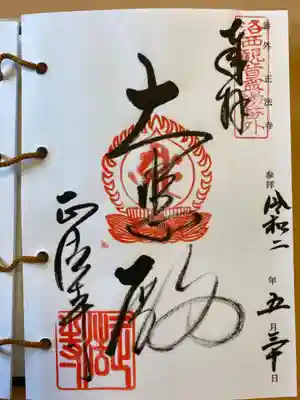 番外 正法寺
洛西観音霊場番外
奉拝
参拝 令和二年五月三十日
大悲殿
正法寺